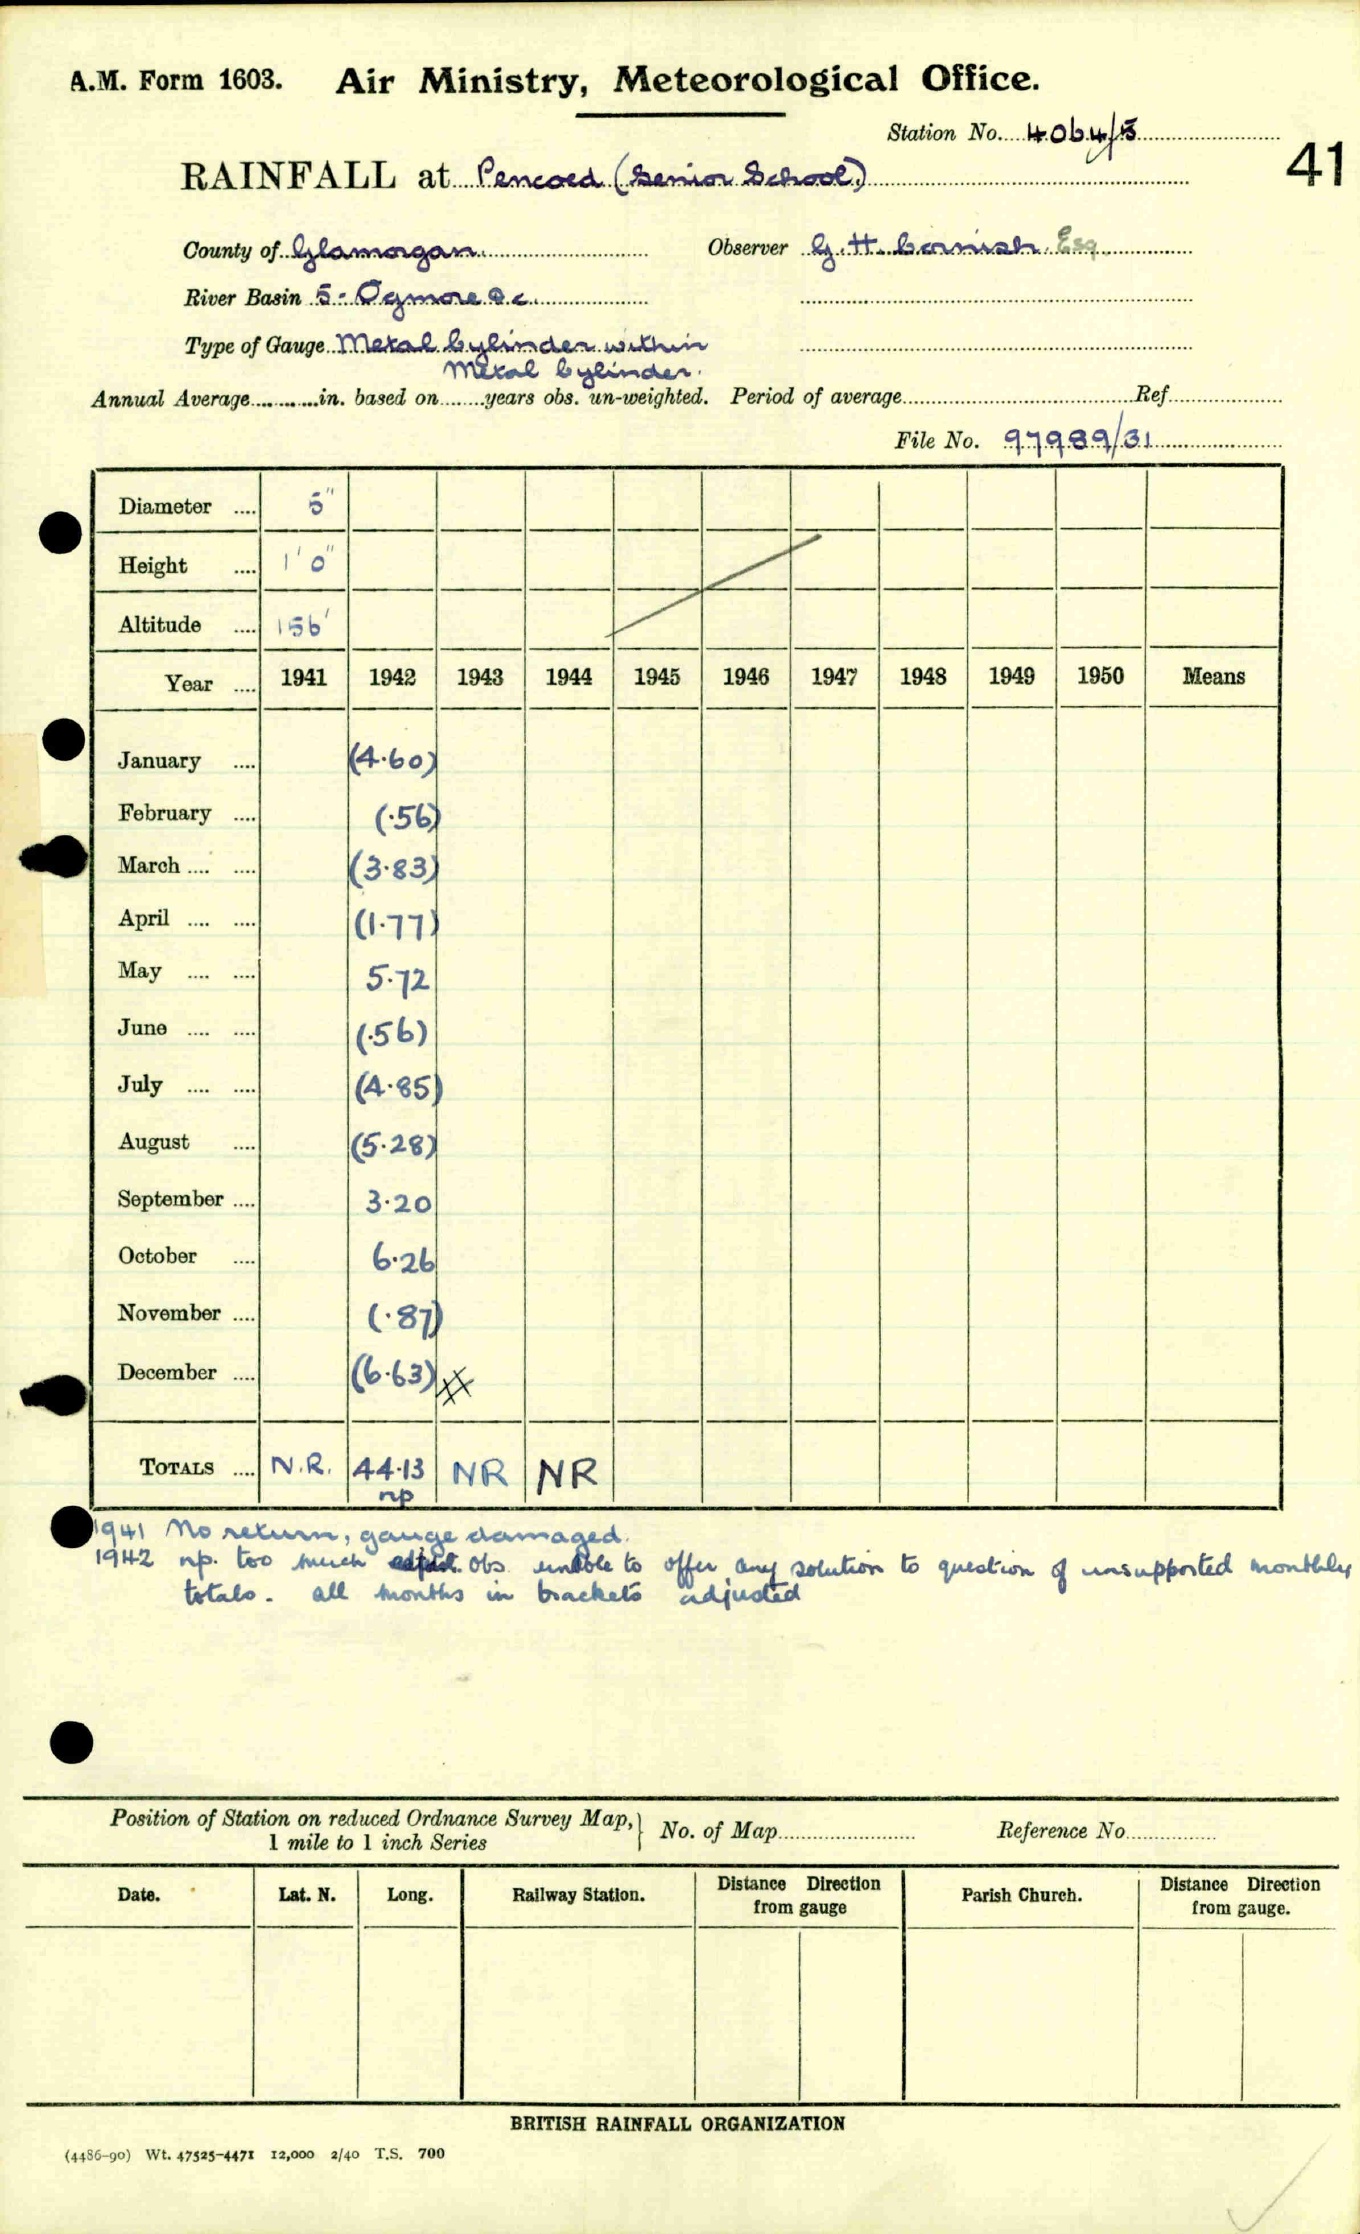 A.M. Form 1603. Air Ministry, Meteorological Office.
Station No. 4064/5
41
RAINFALL at Pencoed (Senior School)
County of Glamorgan. Observer G. H. Cornish Esq.
River Basin 5 - Ogmore &c.
Type of Gauge Metal Cylinder within
Metal Cylinder.
Annual Average in. based on years obs. un-weighted. Period of average Ref
File No. 97989/31
Diameter 5"
Height 1' 0"
Altitude 156'
Year 1941 1942 1943 1944 1945 1946 1947 1948 1949 1950 Means
January (4.60)
February (.56)
March (3.83)
April (1.77)
May 5.72
June (.56)
July (4.85)
August (5.28)
September 3.20
October 6.26
November (.87)
December (6.63)
TOTALS N.R. 44.13 NR NR
np
1941 No return, gauge damaged.
1942 np. too much Obs unable to offer any solution to question of unsupported monthly
totals. all months in brackets adjusted
Position of Station on reduced Ordnance Survey Map, } No. of Map Reference No
1 mile to 1 inch Series
Date. Lat. N. Long. Railway Station. Distance Direction from gauge Parish Church. Distance Direction from gauge.
BRITISH RAINFALL ORGANIZATION
(4486-90) Wt. 47525-4471 12,000 2/40 T.S. 700